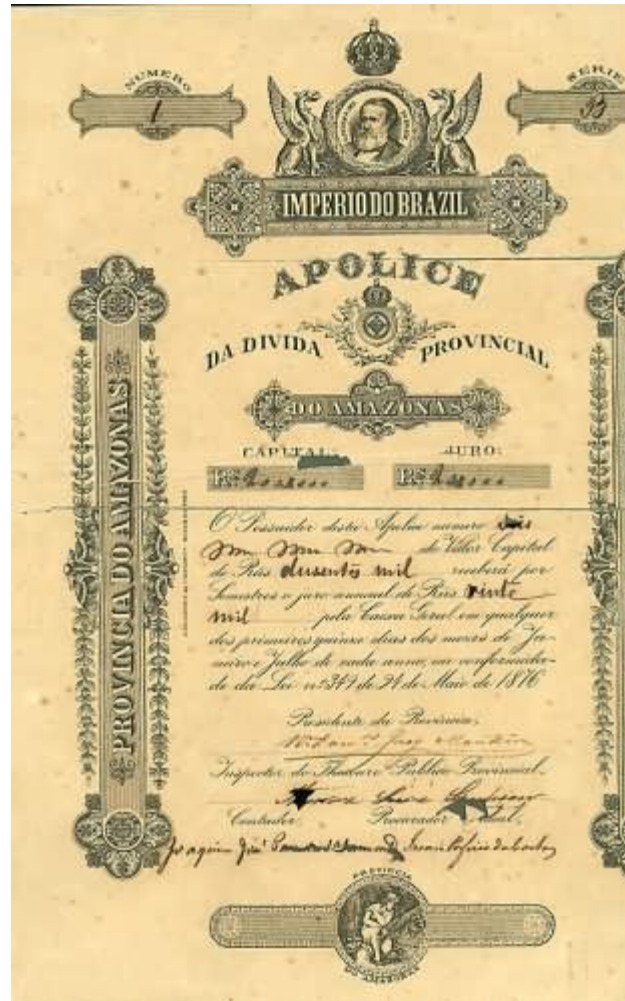 NUMERO
1
SERIE
IMPERIO DO BRAZIL
APOLICE
DA DIVIDA PROVINCIAL
DO AMAZONAS
CAPITAL: JURO:
PROVINCIA DO AMAZONAS
O Possuidor desta Apolice numero
do Valor Capital
de Reis dusentos mil receberá por
Semestres o juro annual de Reis vinte
mil pela Caixa Geral em qualquer
dos primeiros quinze dias dos mezes de Ja-
neiro e Julho de cada anno, em conformida-
de da Lei nº 349 de 21 de Maio de 1876
Presidente da Provincia,
Inspector do Thesouro Publico Provincial.
Contador Procurador Fiscal,
Joaquim José
PROVINCIA
DO AMAZONAS